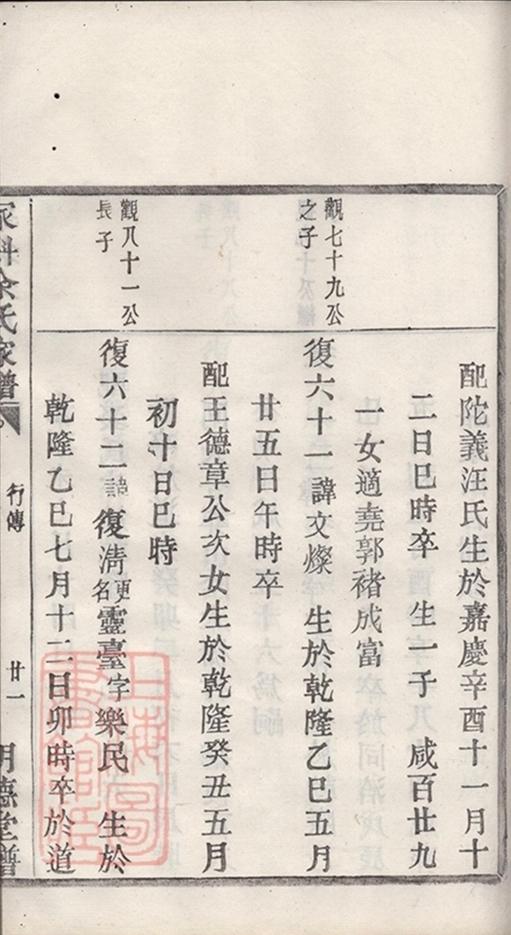 配陀義汪氏生於嘉慶辛酉十一月十
二日巳時卒 生一子 咸百廿九
一女適堯郭褚成富
觀七十九公
之子
復六十一諱文燦 生於乾隆乙巳五月
廿五日午時卒
配王德章公次女生於乾隆癸丑五月
初十日巳時
觀八十一公
長子
復六十二諱復清更名靈臺字樂民 生於
乾隆乙巳七月十二日卯時卒於道
余氏家譜
行傳
廿一
明德堂譜